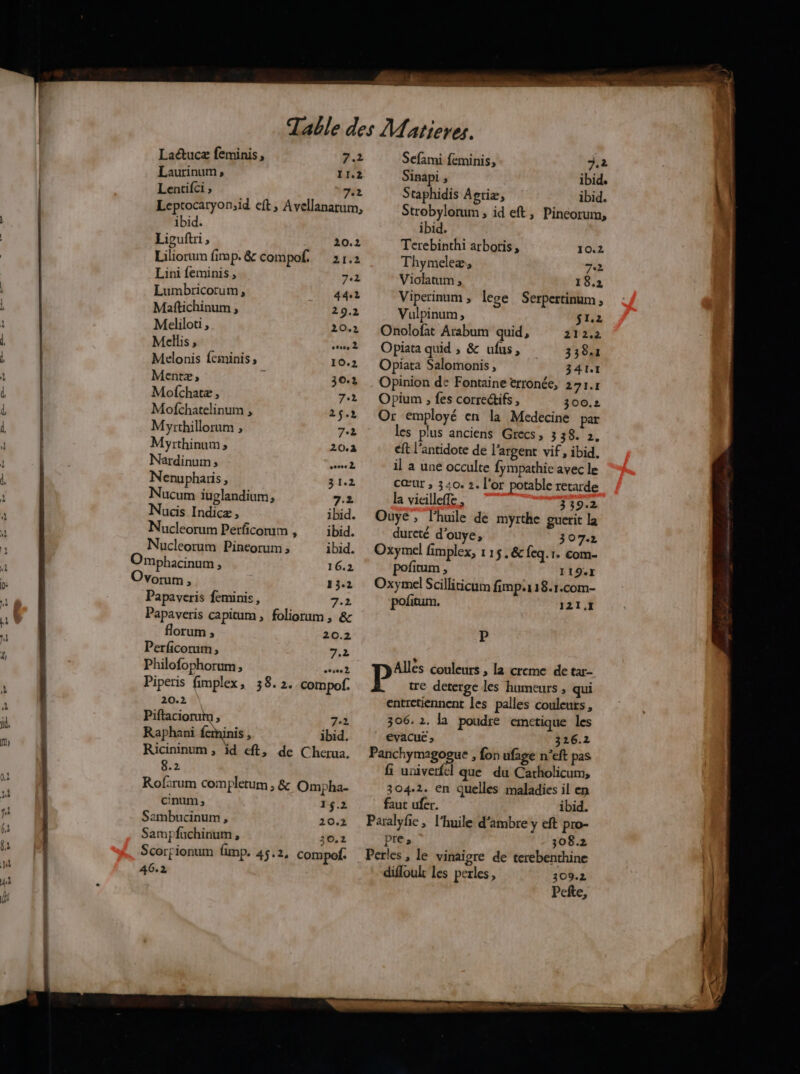 Table des Matieres.
Lactucæ ſeminis, 7.2
Laurinum, 11.2
Lentiſci, 7.2
Leptocaryon, id eſt, Avellanarum,
ibid.
Liguſtri, 20.2
Liliorum ſimp. & compoſ. 21.2
Lini ſeminis, 7.2
Lumbricorum, 44.2
Maſtichinum, 29.2
Meliloti, 20.2
Mellis, ....2
Melonis ſeminis, 10.2
Mentæ, 30.2
Moſchatæ, 7.2
Moſchatelinum, 25.2
Myrthillorum, 7.2
Myrthinum, 20.2
Nardinum, ....2
Nenupharis, 31.2
Nucum iuglandium, 7.2
Nucis Indicæ, ibid.
Nucleorum Perſicorum, ibid.
Nucleorum Pineorum, ibid.
Omphacinum, 16.2
Ovorum, 13.2
Papaveris ſeminis, 7.2
Papaveris capitum, foliorum, &
florum, 20.2
Perſicorum, 7.2
Philoſophorum, ....2
Piperis ſimplex, 38.2. compoſ.
20.2
Piſtaciorum, 7.2
Raphani ſeminis, ibid.
Ricininum, id eſt, de Cherua.
8.2
Roſarum completum, & Ompha-
cinum, 15.2
Sambucinum, 20.2
Sampſuchinum, 30.2
Scorpionum ſimp. 45.2. compoſ.
46.2
Seſami ſeminis, 7.2
Sinapi, ibid.
Staphidis Agriæ, ibid.
Strobylorum, id eſt, Pineorum,
ibid.
Terebinthi arboris, 10.2
Thymeleæ, 7.2
Violatum, 18.2
Viperinum, lege Serpertinum,
Vulpinum, 51.2
Onoloſat Arabum quid, 212.2
Opiata quid, & uſus, 338.1
Opiata Salomonis, 341.1
Opinion de Fontaine erronée, 271.1
Opium, ſes correctifs, 300.2
Or employé en la Medecine par
les plus anciens Grecs, 338. 2.
eſt l'antidote de l'argent vif, ibid.
il a une occulte ſympathie avec le
cœur, 340. 2. l'or potable retarde
la vieilleſſe, 339.2
Ouye, l'huile de myrthe guerit la
dureté d'ouye, 307.2
Oxymel ſimplex, 115. & ſeq. 1. com-
poſitum, 119.1
Oxymel Scilliticum ſimp. 118.1. com-
poſitum. 121.1
P
PAlles couleurs, la creme de tar-
tre deterge les humeurs, qui
entretiennent les palles couleurs,
306. 2. la poudre emetique les
evacuë, 326.2
Panchymagogue, ſon uſage n'eſt pas
ſi univerſel que du Catholicum,
304.2. en quelles maladies il en
faut uſer. ibid.
Paralyſie, l'huile d'ambre y eſt pro-
pre, 308.2
Perles, le vinaigre de terebenthine
diſſoult les perles, 309.2
Peſte,